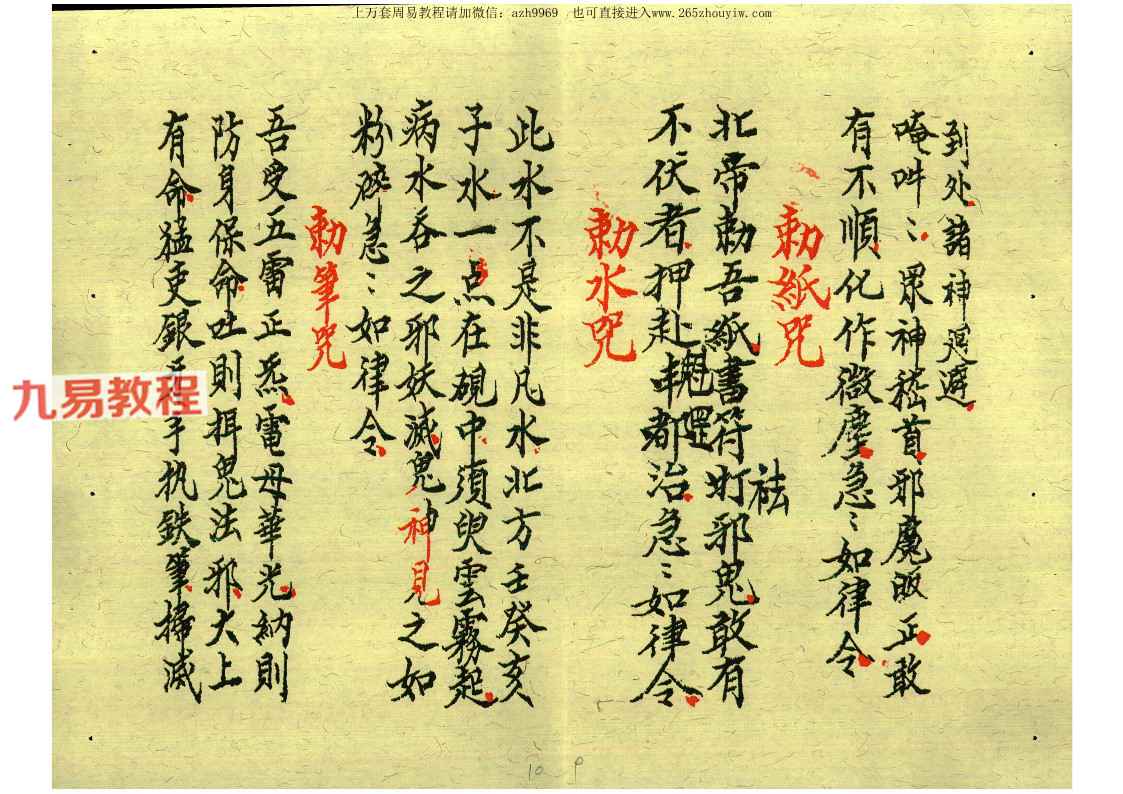 上万套周易教程请加微信：azh9969　也可直接进入www.265zhouyiw.com
到处諸神迴避
唵吽〻眾神嵇首邪魔皈正敢
有不順化作微塵急〻如律令
勅紙咒
北帝勅吾紙書符打邪鬼敢有
祛
不伏者押赴酆都治急〻如律令
魁罡
勅水咒
此水不是非凡水北方壬癸亥
子水一点在硯中須臾雲霧起
病水吞之邪妖滅鬼神見之如
粉碎急〻如律令
勅筆咒
吾受五雷正炁電母華光納則
防身保命吐則捉鬼法邪大上
有命猛吏銀牙手执鉄筆掃滅
九易教程
10 9